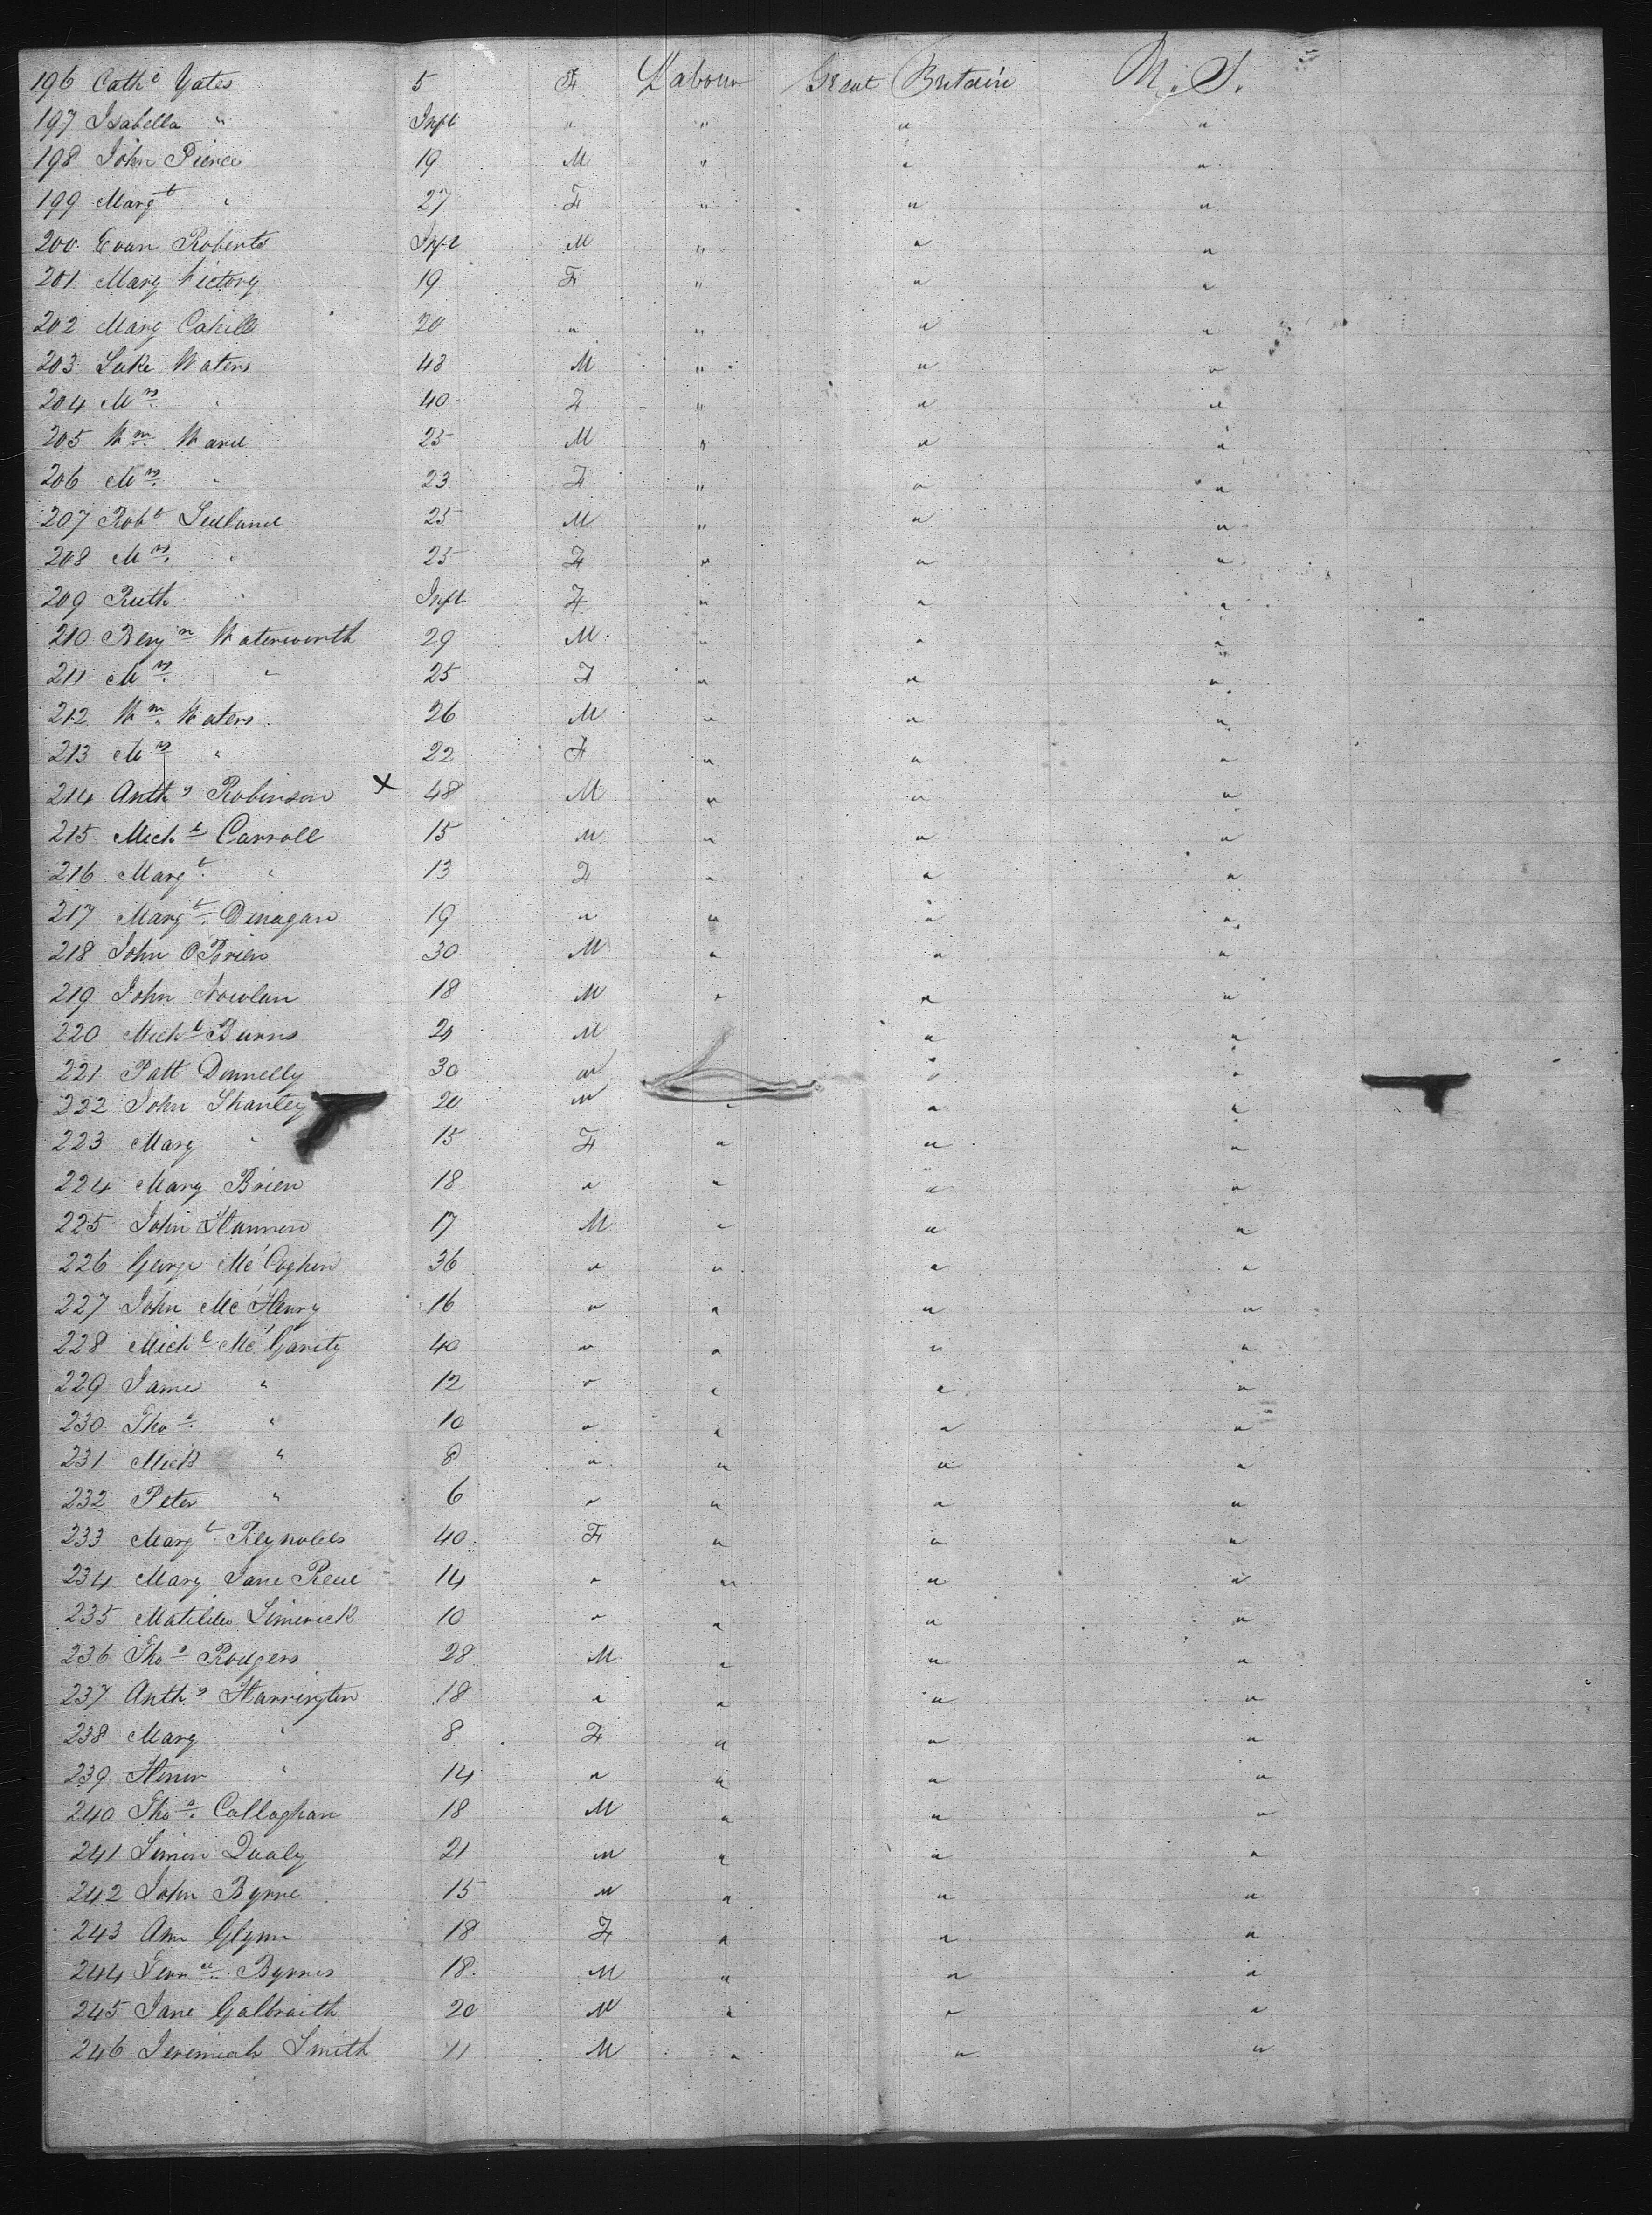 196 Cathe Yates 5 F Labour Great Britain U. S.
197 Isabella " Inft " " " "
198 John Pierce 19 M " " "
199 Margt " 27 F " " "
200 Evan Roberts Inft M " " "
201 Mary Victory 19 F " " "
202 Mary Cahill 20 " " " "
203 Luke Waters 43 M " " "
204 Mrs " 40 F " " "
205 Wm Ward 25 M " " "
206 Mrs " 23 F " " "
207 Robt 25 M " " "
208 Mrs " 25 F " " "
209 Ruth " Inft F " " "
210 Benjn Waterworth 29 M " " "
211 Mrs " 25 F " " "
212 Wm Waters 26 M " " "
213 Mrs " 22 F " " "
214 Anthy Robinson X 48 M " " "
215 Michl Carroll 15 M " " "
216 Margt " 13 F " " "
217 Margt Dinagan 19 " " " "
218 John OBrien 30 M " " "
219 John Nowlan 18 M " " "
220 Michl Burns M " "
221 Patt Donnelly 30 " " "
222 John Shanley 20 " " " "
223 Mary " 15 F " " "
224 Mary Brien 18 " " " "
225 John Hannen 17 M " " "
226 George McCoghen 36 " " " "
227 John McHenry 16 " " " "
228 Michl McGarity 40 " " " "
229 James " 12 " " " "
230 Thos " 10 " " " "
231 Mick " 8 " " " "
232 Peter " 6 " " " "
233 Margt Reynolds 40 F " " "
234 Mary Jane Reed 14 " " " "
235 Matilda Limerick 10 " " " "
236 Thos Rodgers 28 M " " "
237 Anthy Harrington 18 " " " "
238 Mary " 8 F " " "
239 Honor " 14 " " " "
240 Thos Callaghan 18 M " " "
241 Simon Qualy 21 " " " "
242 John Byrne 15 " " " "
243 Ann Glynn 18 F " " "
244 Byrnes 18 M " " "
245 Jane Galbraith 20 M " " "
246 Jeremiah Smith 11 M " " "